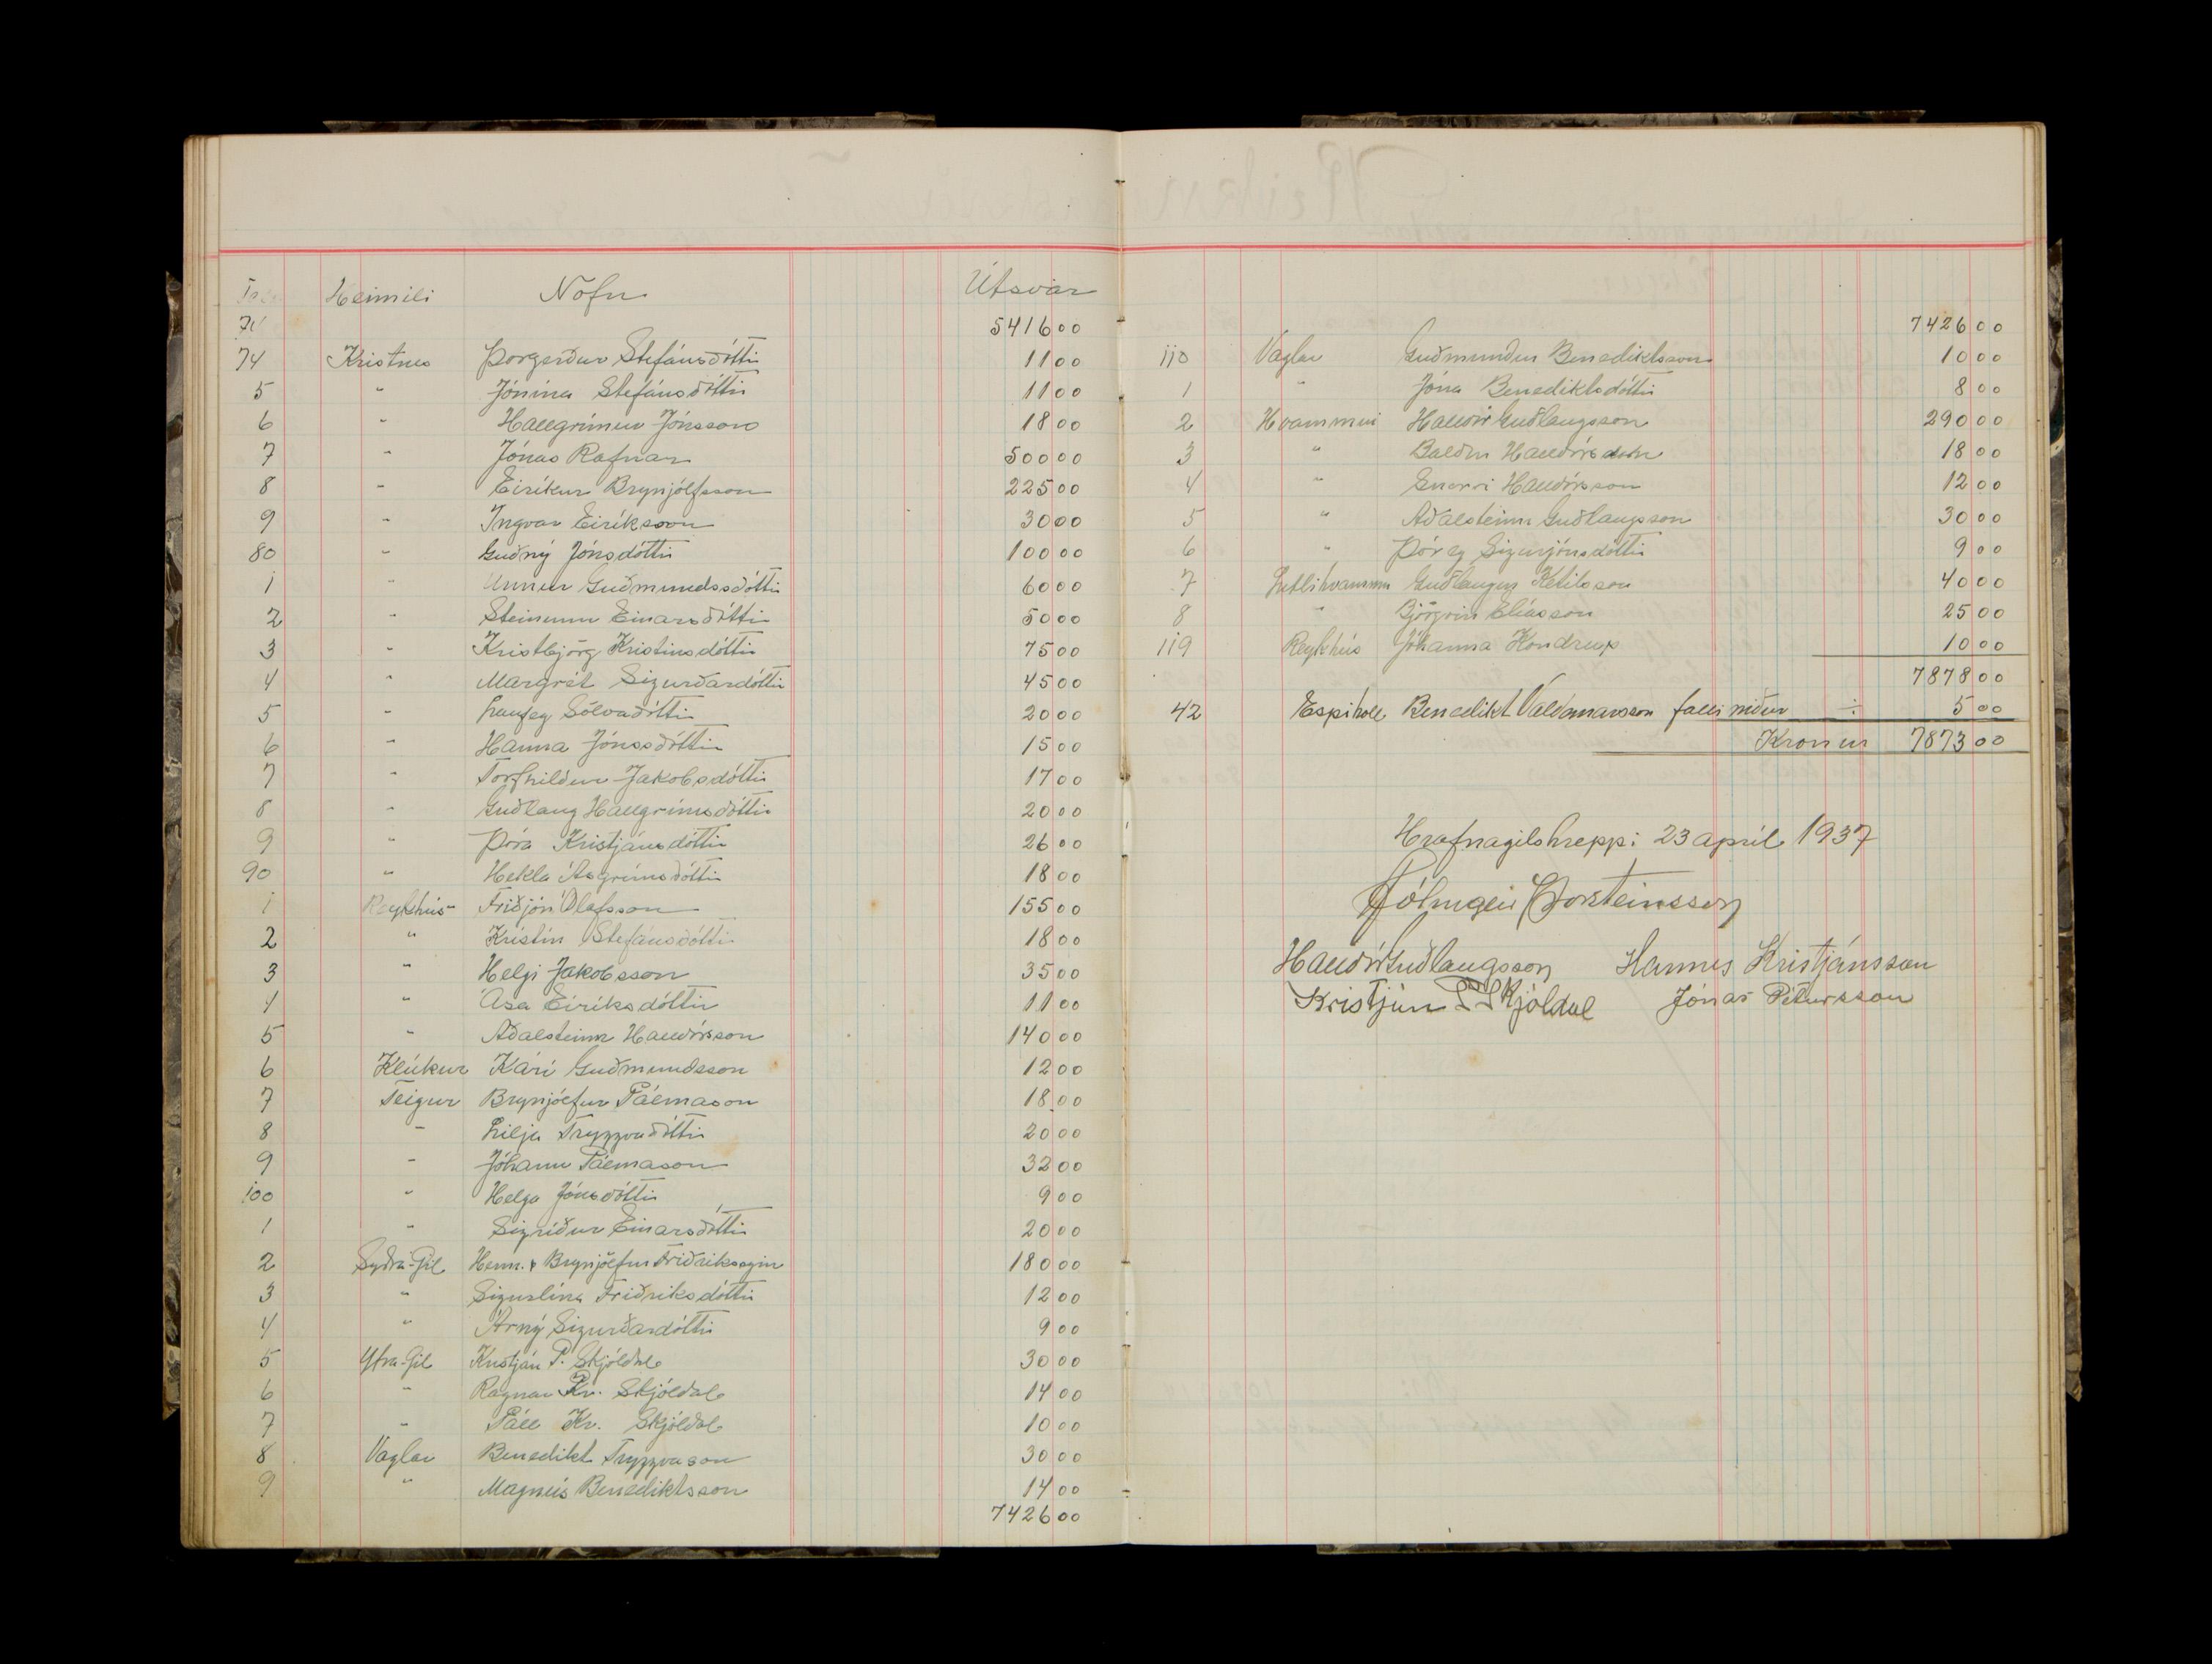 Heimili Nöfn Útsvar
5416 00
74 Kristnes Þorgerður Stefánsdóttir 11 00
5 " Jónína Stefánsdóttir 11 00
6 " Hallgrímur Jónsson 18 00
7 " Jónas Rafnar 500 00
8 " Eiríkur Brynjólfsson 225 00
9 " Ingvar Eiríksson 30 00
80 " Guðný Jónsdóttir 100 00
1 " Unnur Guðmundsdóttir 60 00
2 " Steinunn Einarsdóttir 50 00
3 " Kristbjörg Kristinsdóttir 75 00
4 " Margrét Sigurðardóttir 45 00
5 " Laufey Sölvadóttir 20 00
6 " Hanna Jónsdóttir 15 00
7 " Torfhildur Jakobsdóttir 17 00
8 " Guðlaug Hallgrímsdóttir 20 00
9 " Þóra Kristjánsdóttir 26 00
90 " Hekla Ásgrímsdóttir 18 00
1 Reykhús Friðjón Ólafsson 155 00
2 " Kristín Stefánsdóttir 18 00
3 " Helgi Jakobsson 35 00
4 " Ása Eiríksdóttir 11 00
5 " Aðalsteinn Halldórsson 140 00
6 Klúkur Kári Guðmundsson 12 00
7 Teigur Brynjólfur Pálmason 18 00
8 " Lilja Tryggvadóttir 20 00
9 " Jóhann Pálmason 32 00
100 " Helga Jónsdóttir 9 00
1 " Sigríður Einarsdóttir 20 00
2 Syðra-Gil Herm. & Brynjólfur Friðrikssynir 180 00
3 " Sigurlína Friðriksdóttir 12 00
4 " Árný Sigurðardóttir 9 00
5 Ytra-Gil Kristján P. Skjóldal 30 00
6 " Ragnar Kr. Skjóldal 14 00
7 " Páll Kr. Skjóldal 10 00
8 Vaglar Benedikt Tryggvason 30 00
9 " Magnús Benediktsson 14 00
7426 00
7426 00
110 Vaglar Guðmundur Benediktsson 10 00
1 " Jóna Benediktsdóttir 8 00
2 Hvammur Halldór Guðlaugsson 290 00
3 " Baldur Halldórsson 18 00
4 " Snorri Halldórsson 12 00
5 " Aðalsteinn Guðlaugsson 30 00
6 " Þórey Sigurjónsdóttir 9 00
7 Litlihvammur Guðlaugur Ketilsson 40 00
8 " Björgvin Elíasson 25 00
119 Reykhús Jóhanna Kondrup 10 00
7878 00
42 Espihóll Benedikt Valdemarsson falli niður ÷ 5 00
Kronur 7873 00
Hrafnagilshreppi 23 apríl 1937
Hólmgeir Þorsteinsson
Halldór Guðlaugsson Hannes Kristjánsson
Kristján P Skjóldal Jónas Pétursson